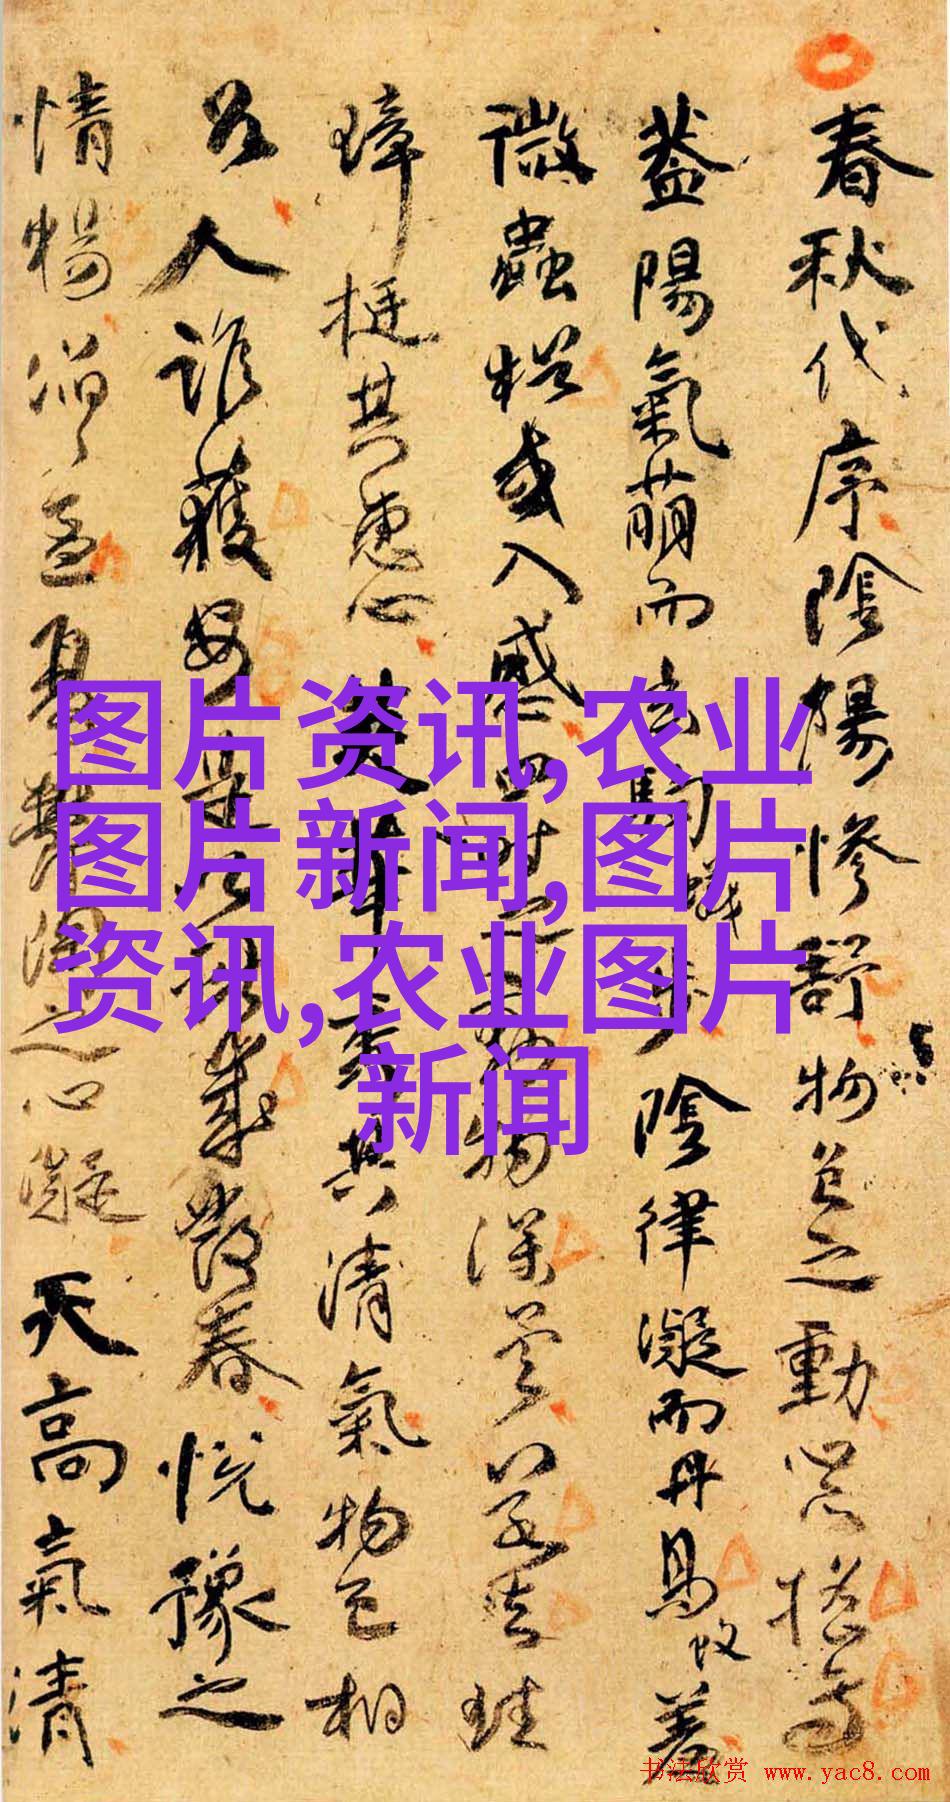 春秋代序陰陽慘舒物色之動心搖焉
蓋陽氣萌而玄駒蟻步陰律凝而丹鳥蚊羞
微蟲猶或入感四時之動物深矣若夫珪
璋挺其惠心英華秀其清氣物色相
召人誰獲安是以獻歲發春悅豫之
情暢滔滔孟夏鬱陶之心凝天高氣清
图片资讯,农业
图片新闻,图片
资讯,农业图片
新闻
书法欣赏 www.yac8.com